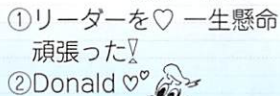 ①リーダーを♡ 一生懸命
頑張った!!
②Donald ♡♡